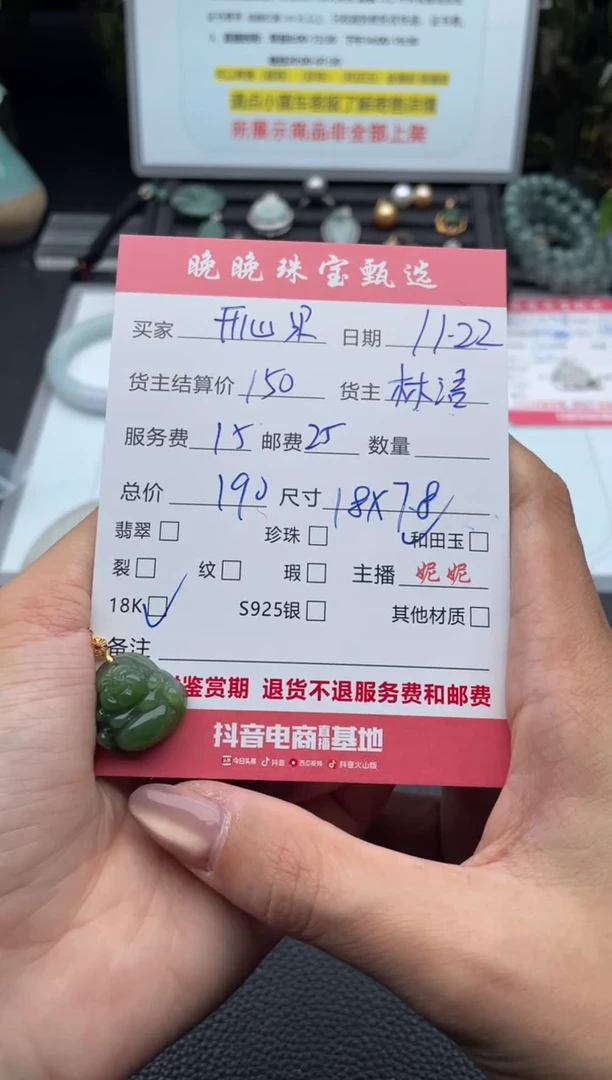 请点小黄车客服了解寄售详情
所展示商品非全部上架
晚晚珠宝甄选
买家 开心果 日期 11-22
货主结算价 150 货主 林语
服务费 15 邮费 25 数量
总价 190 尺寸 18X7.8
翡翠 珍珠 和田玉
裂 纹 瑕 主播 妮妮
18K S925银 其他材质
备注
鉴赏期 退货不退服务费和邮费
抖音电商直播基地
今日头条 抖音 西瓜视频 抖音火山版